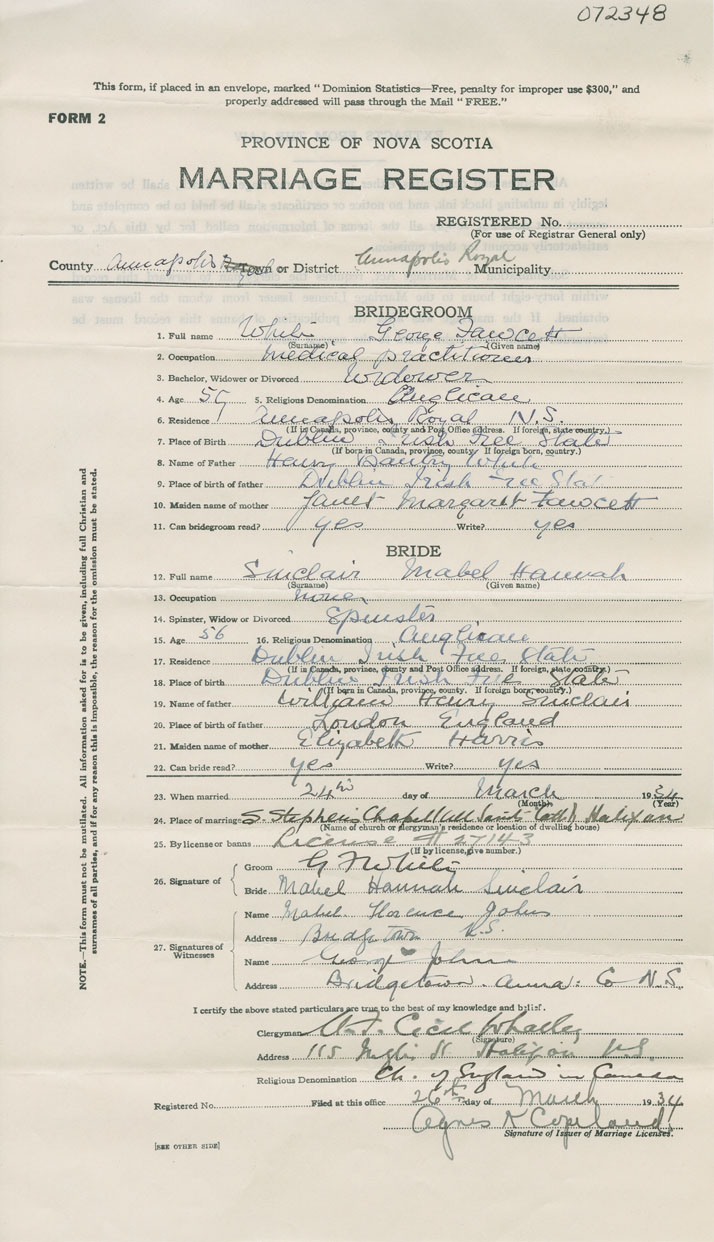 072348
This form, if placed in an envelope, marked "Dominion Statistics—Free, penalty for improper use $300," and
properly addressed will pass through the Mail "FREE."
FORM 2
PROVINCE OF NOVA SCOTIA
MARRIAGE REGISTER
REGISTERED No.
(For use of Registrar General only)
County Annapolis Town or District Annapolis Royal Municipality
BRIDEGROOM
1. Full name White George Fawcett
(Surname) (Given name)
2. Occupation Medical practitioner
3. Bachelor, Widower or Divorced Widower
4. Age 59 5. Religious Denomination Anglican
6. Residence Annapolis Royal N.S.
(If in Canada, province, county and Post Office address. If foreign, state country.)
7. Place of Birth Dublin Irish Free State
(If born in Canada, province, county. If foreign born, country.)
8. Name of Father Henry Bantry White
9. Place of birth of father Dublin Irish Free State
10. Maiden name of mother Janet Margaret Fawcett
11. Can bridegroom read? yes Write? yes
BRIDE
12. Full name Sinclair Mabel Hannah
(Surname) (Given name)
13. Occupation none
14. Spinster, Widow or Divorced Spinster
15. Age 56 16. Religious Denomination Anglican
17. Residence Dublin Irish Free State
(If in Canada, province, county and Post Office address. If foreign, state country.)
18. Place of Birth Dublin Irish Free State
(If born in Canada, province, county. If foreign born, country.)
19. Name of father William Henry Sinclair
20. Place of birth of father London England
21. Maiden name of mother Elizabeth Harris
22. Can bride read? yes Write? yes
23. When married 24th day of March 1934
(Month) (Year)
24. Place of marriage S. Stephens Chapel All Saints Cath'l Halifax
(Name of church or clergyman's residence or location of dwelling house)
25. By license or banns License # 27143
(If by license, give number.)
26. Signature of
Groom G F White
Bride Mabel Hannah Sinclair
27. Signatures of Witnesses
Name Mabel Florence Johns
Address Bridgetown N.S.
Name George Johns
Address Bridgetown. Anna: Co N.S.
I certify the above stated particulars are true to the best of my knowledge and belief.
Clergyman Cecil Whalley
(Signature)
Address 115 Inglis St Halifax N.S.
Religious Denomination Ch. of England in Canada
Registered No. Filed at this office 26th day of March 1934
Agnes K Copeland
Signature of Issuer of Marriage Licenses.
[SEE OTHER SIDE]
NOTE.—This form must not be mutilated. All information asked for is to be given, including full Christian and
surnames of all parties, and if for any reason this is impossible, the reason for the omission must be stated.